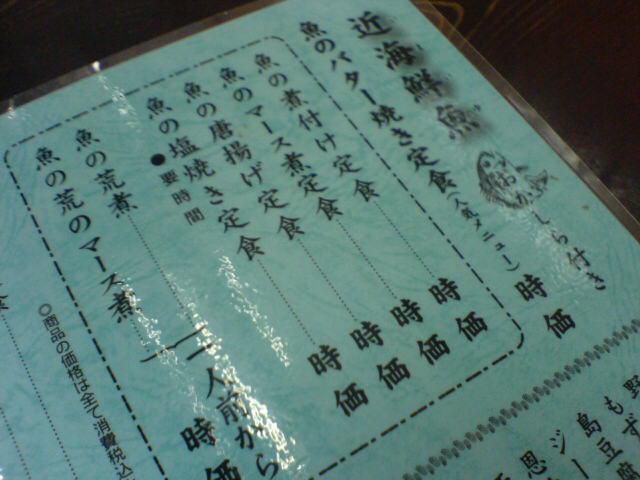 近海鮮魚
おかしら付き
魚のバター焼き定食(人気メニュー) 時価
魚の煮付け定食 時価
魚のマース煮定食 時価
魚の唐揚げ定食 時価
魚の塩焼き定食 時価
●要時間
魚の荒煮
魚の荒のマース煮
二人前から
時価
◎商品の価格は全て消費税込
食
野
もず
島豆腐